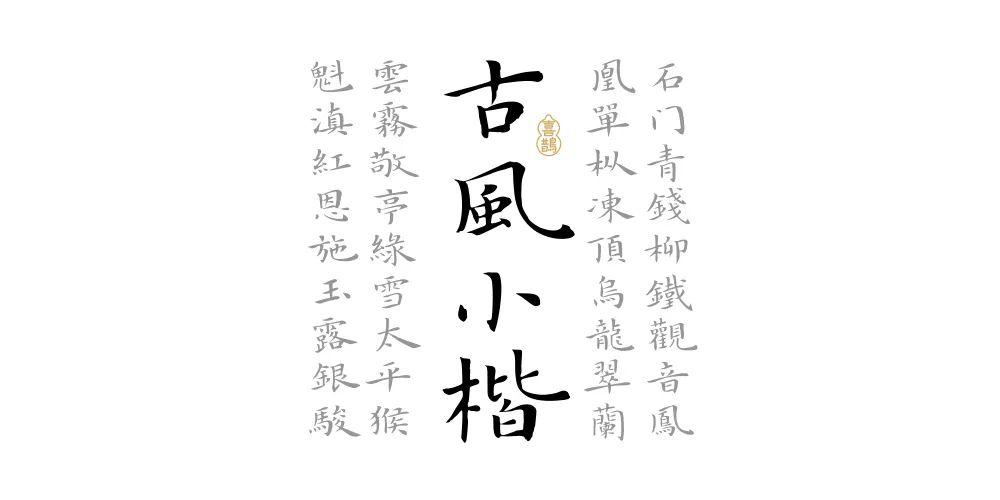 石门青錢柳鐵觀音鳳
凰單枞凍頂烏龍翠蘭
古風小楷
喜鵲
雲霧敬亭綠雪太平猴
魁滇紅恩施玉露銀駿